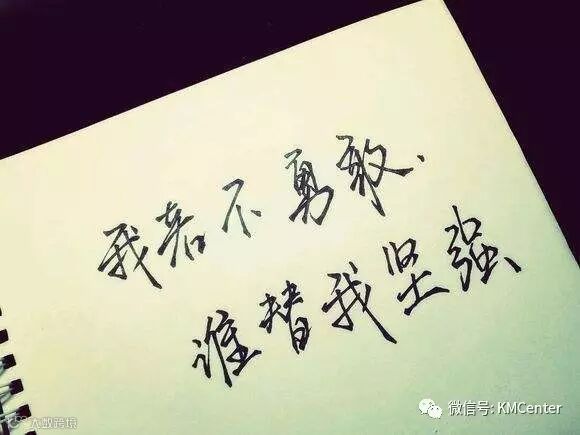 我若不勇敢.
谁替我坚强
微信号: KMCenter
大数跨境